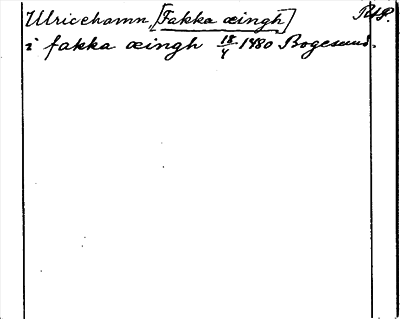 Ulricehamn, [Fakka æingh] R18.
i fakka æingh 18/4 1480 Bogesund.